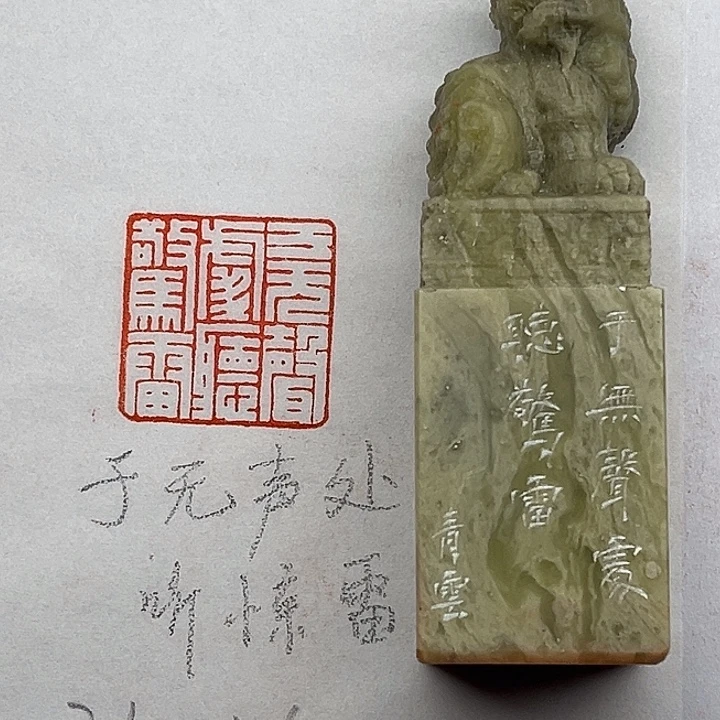 于无聲
處聽
驚雷
于无声处
听惊雷
于無聲處
聽驚雷
青雲